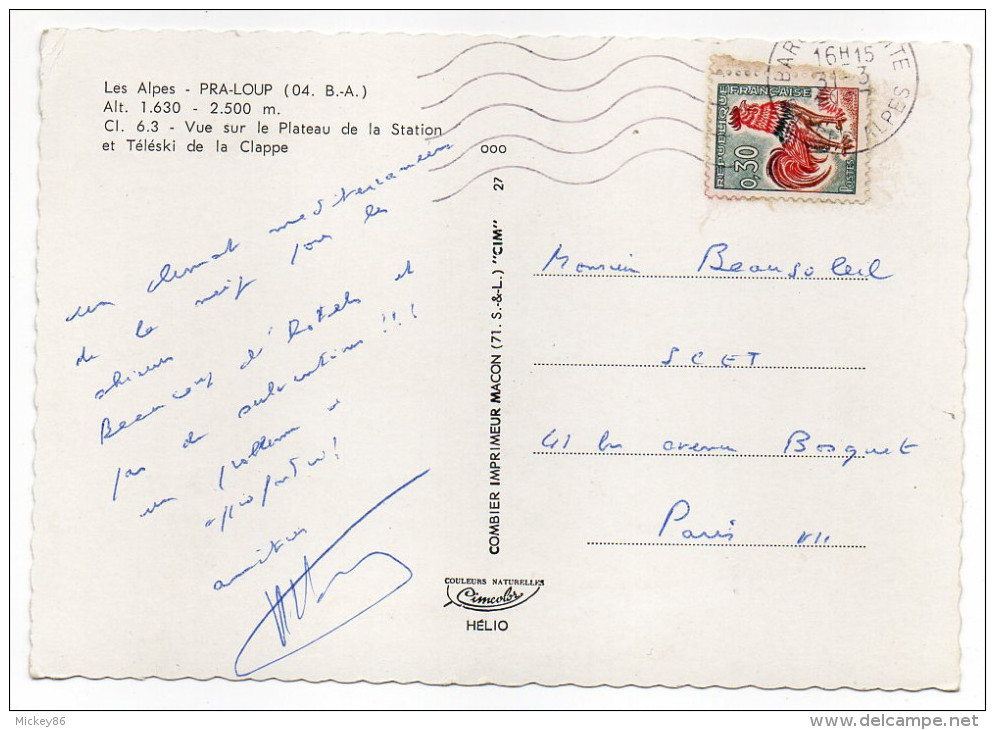 Les Alpes - PRA-LOUP (04. B.-A.)
Alt. 1.630 - 2.500 m.
Cl. 6.3 - Vue sur le Plateau de la Station
et Téléski de la Clappe
un climat mediterranéen
de la neige pour les
skieurs
Beaucoup d'hotels et
pas de subventions !!!
un problème
amitiés
COMBIER IMPRIMEUR MACON (71. S.-&-L.) "CIM" 27
ooo
COULEURS NATURELLES
Cimcolor
HÉLIO
16H15
31-3
ALPES
REPUBLIQUE FRANÇAISE
0,30
POSTES
Monsieur Beausoleil
SCET
41 bis avenue Bosquet
Paris VII
Mickey86
delcampe.net